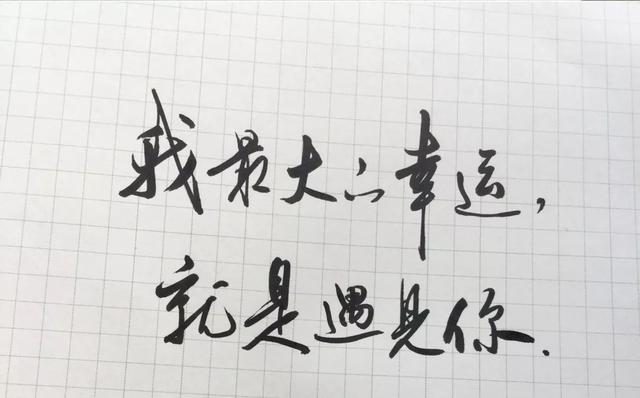 我最大的幸运，
就是遇见你.